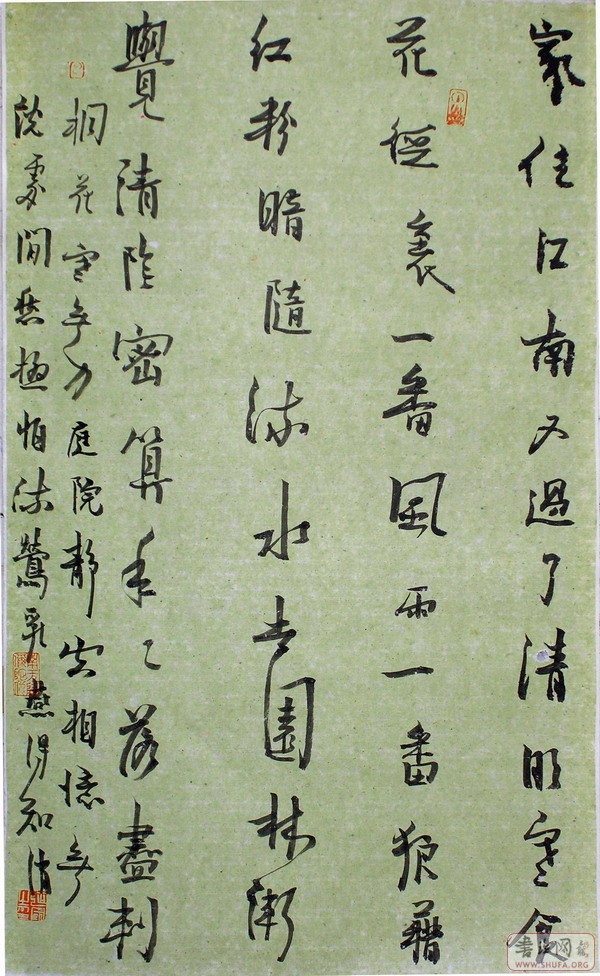 家住江南又過了清明寒食
花徑裏一番風雨一番狼藉
紅粉暗隨流水去園林漸
覺清陰密算年々落盡刺
桐花寒無力庭院靜空相憶無
說處閒愁極怕流鶯乳燕得知消
WWW.SHUFA.ORG